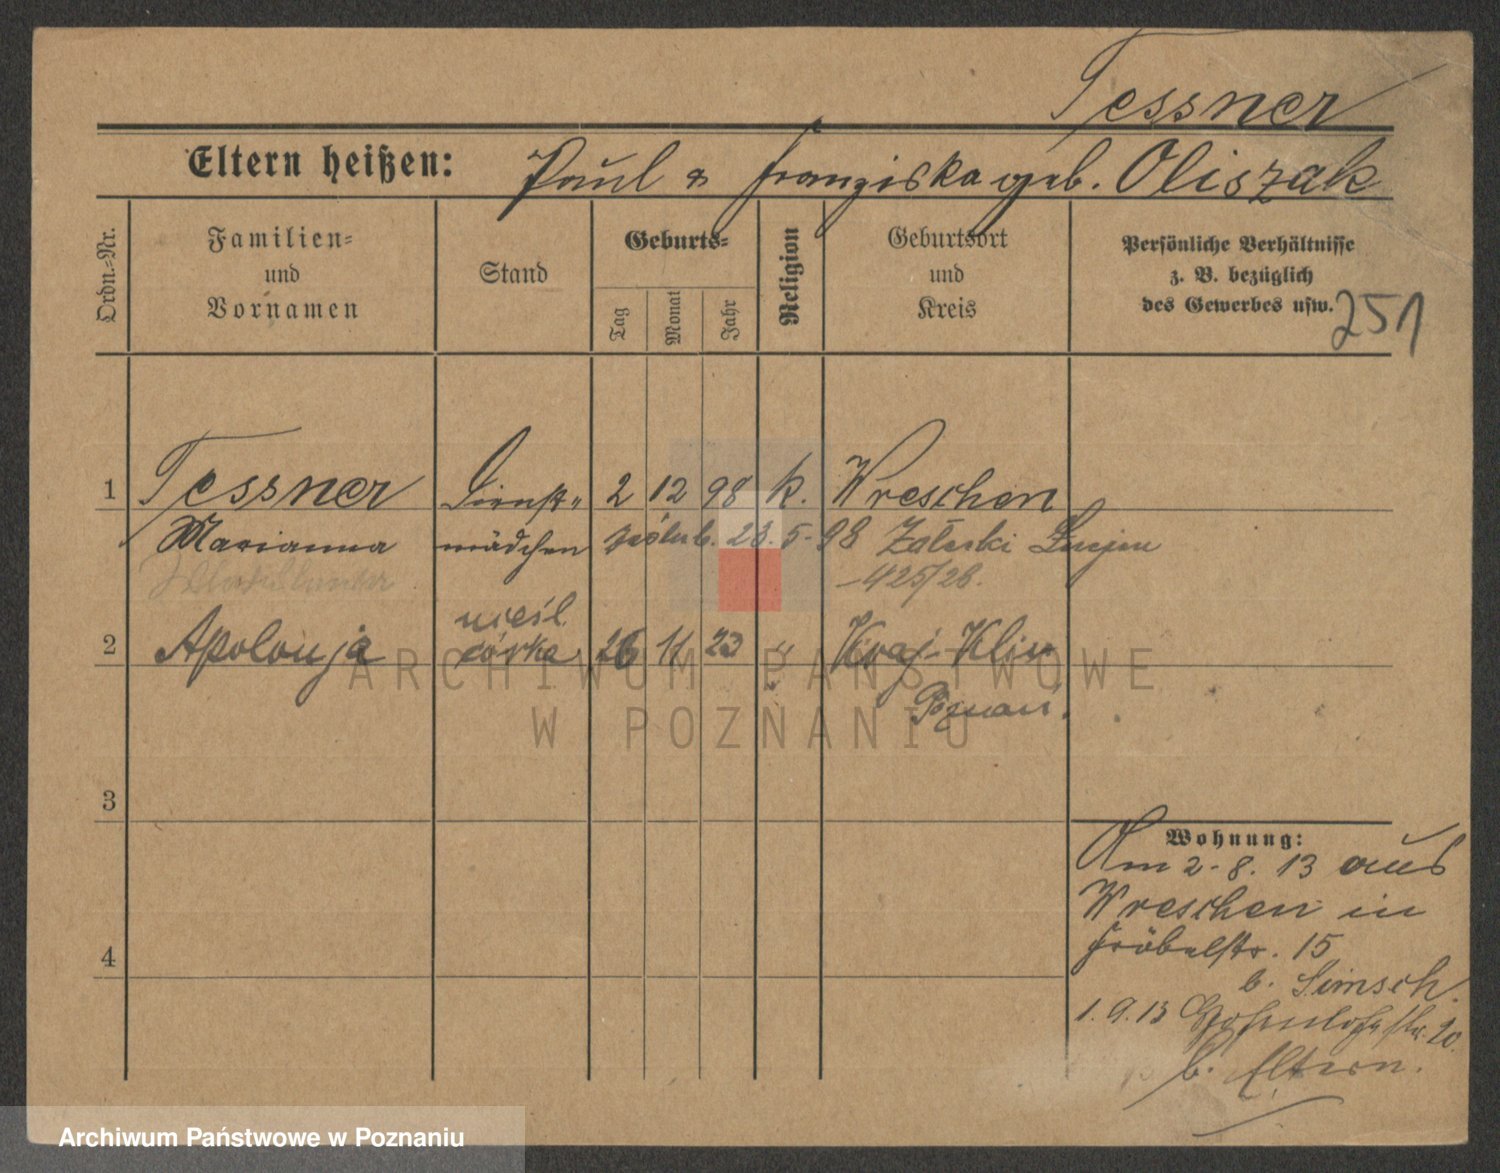 Tessner
Eltern heißen: Paul & Franziska geb. Oliszak
Ordn.-Nr.
Familien-
und
Vornamen
Stand
Geburts-
Tag
Monat
Jahr
Religion
Geburtsort
und
Kreis
Persönliche Verhältnisse
z. B. bezüglich
des Gewerbes usw.
251
1 Tessner Dienst- 2 12 98 k. Wreschen
Marianna mädchen 23. 5. 98 Załeski Lucjan
425/28.
nieśl.
2 Apolonja córka 26 11 23 " Kraj. Klin.
Poznań.
3
4
Wohnung:
Am 2. 8. 13 aus
Wreschen in
Fröbelstr. 15
b. Simsch.
1. 9. 13 20
b. Eltern.
ARCHIWUM PAŃSTWOWE
W POZNANIU
Archiwum Państwowe w Poznaniu